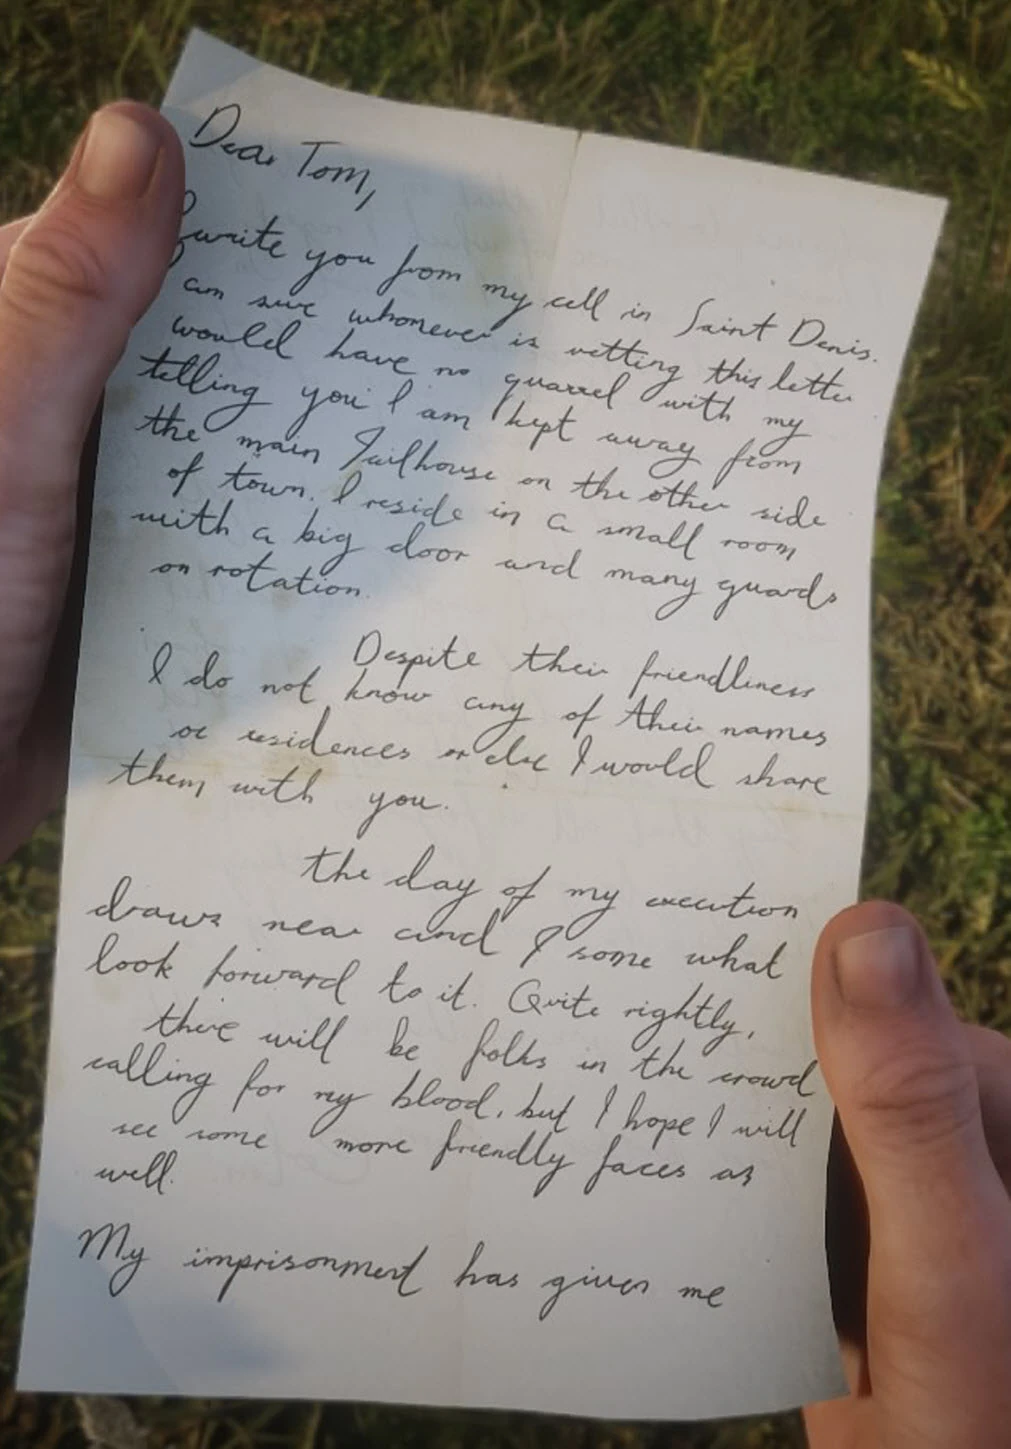 Dear Tom,
I write you from my cell in Saint Denis. I
am sure whomever is vetting this letter
would have no quarrel with my
telling you I am kept away from
the main Jailhouse on the other side
of town. I reside in a small room
with a big door and many guards
on rotation.
Despite their friendliness
I do not know any of their names
or residences or else I would share
them with you.
the day of my execution
draws near and I some what
look forward to it. Quite rightly,
there will be folks in the crowd
calling for my blood, but I hope I will
see some more friendly faces as
well.
My imprisonment has given me